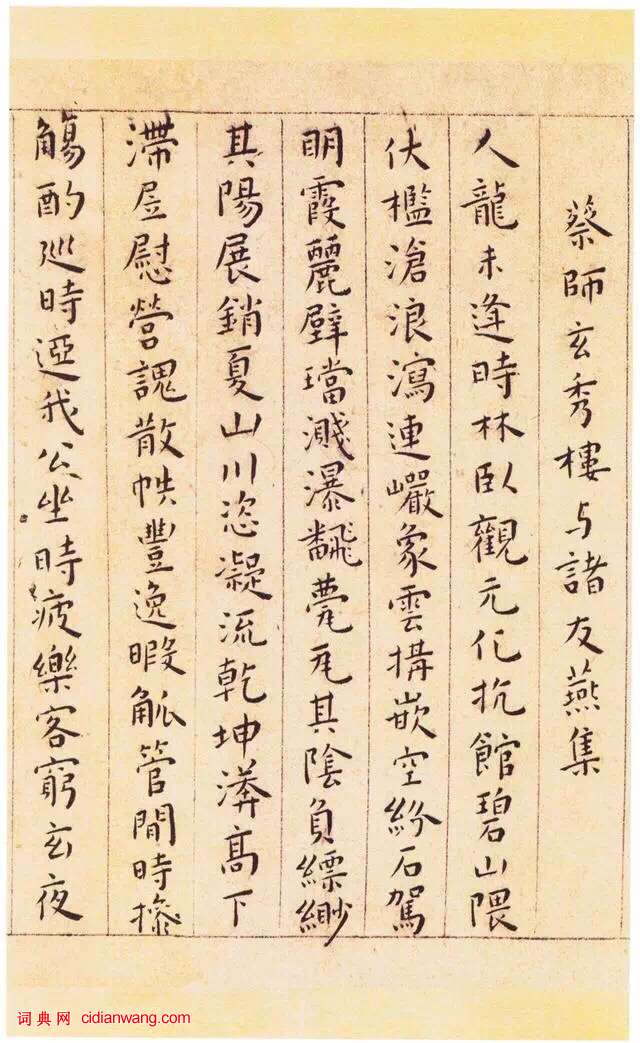 蔡師玄秀樓与諸友燕集
人龍未逢時林臥觀元化抗館碧山隈
伏檻滄浪瀉連巗象雲搆嵌空紛石駕
明霞麗壁璫濺瀑飜甍瓦其陰負縹緲
其陽展銷夏山川恣凝流乾坤漭高下
滯慰營謵散帙豐逸暇觚管間時摻
觴酌巡時迓我公坐時疲樂客窮玄夜
词典网 cidianwang.com